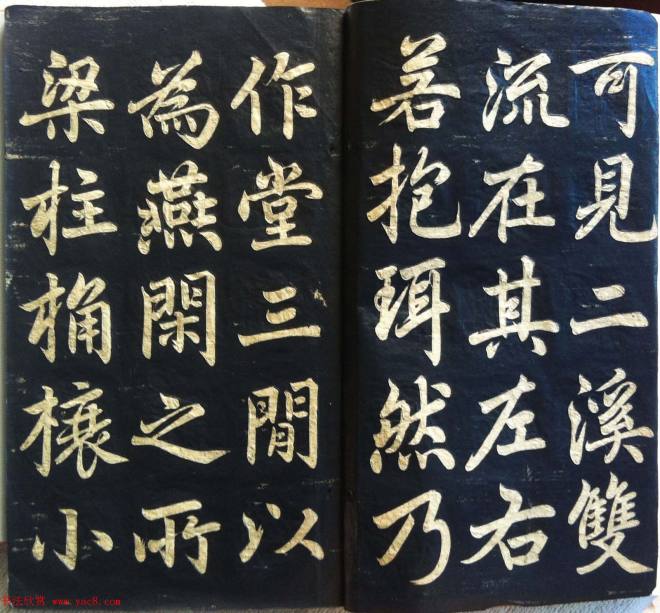 可見二溪雙
流在其左右
若抱珥然乃
作堂三閒以
為燕閑之所
梁柱桷榱小
书法欣赏 www.yac8.com